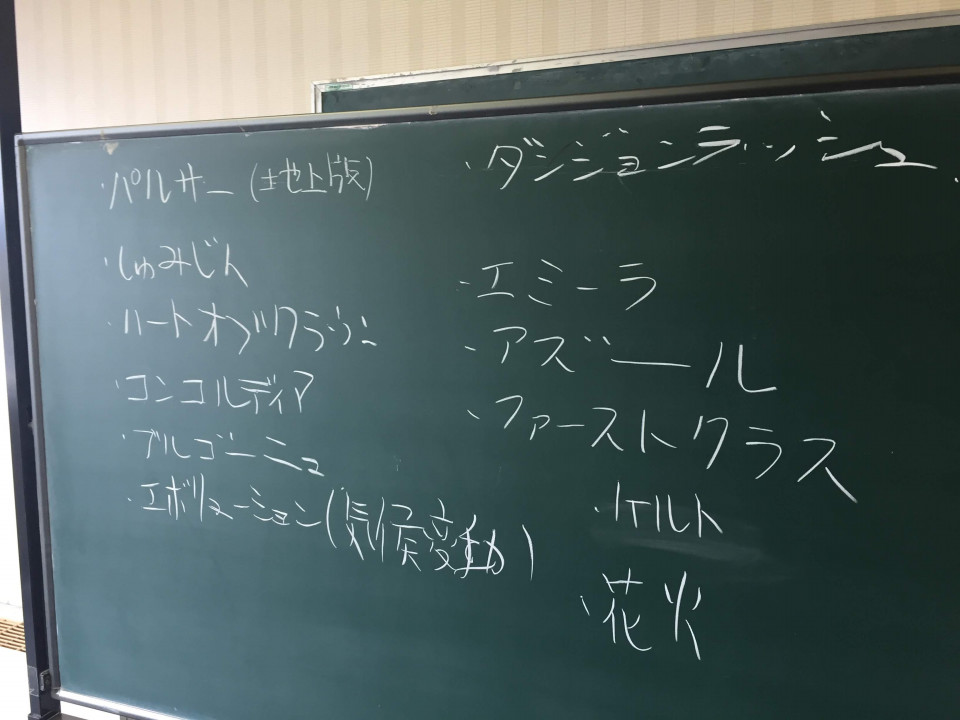 ・パルサー(地上版)
・しゅみじん
・ハートオブクラウン
・コンコルディア
・ブルゴーニュ
・エボリューション(気候変動)
・ダンジョンラッシュ
・エミーラ
・アズール
・ファーストクラス
・ケルト
・花火